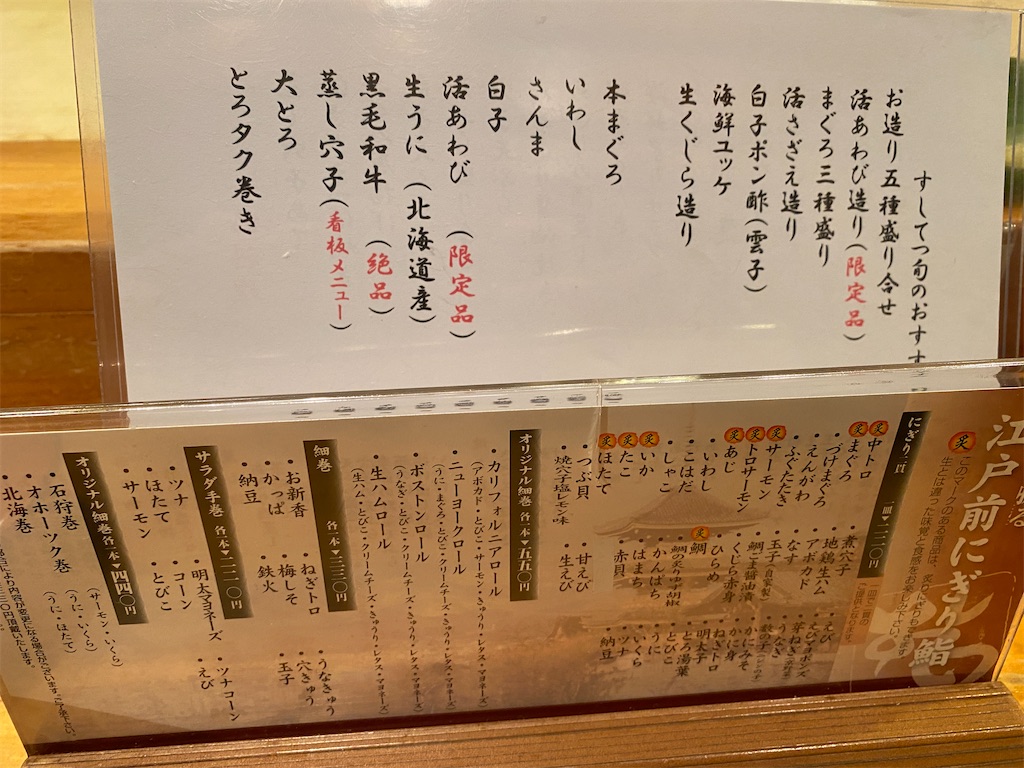 すしてつ旬のおすす
お造り五種盛り合せ
活あわび造り(限定品)
まぐろ三種盛り
活さざえ造り
白子ポン酢(雲子)
海鮮ユッケ
生くじら造り
本まぐろ
いわし
さんま
白子
活あわび (限定品)
生うに (北海道産)
黒毛和牛 (絶品)
蒸し穴子(看板メニュー)
大とろ
とろタク巻き
江戸前にぎり鮨
炙 このマークのある商品は、炙りにぎりもできます
生とは違った味覚と食感をお楽しみ下さい。
にぎり一貫 一皿▼二二〇円
炙 中トロ
炙 まぐろ
づけまぐろ
えんがわ
ふぐたたき
炙 サーモン
炙 トロサーモン
炙 あじ
いわし
こはだ
しゃこ
炙 いか
炙 たこ
炙 ほたて
つぶ貝
焼穴子塩レモン味
煮穴子
地鶏生ハム
アボカド
なす
玉子(自家製)
鯛ごま醤油漬
くじら赤身
ひらめ
炙 鯛
鯛の炙りゆず胡椒
かんぱち
はまち
赤貝
甘えび
生えび
えび
えびマヨポンズ
芽ねぎ
かにみそ
うなぎ
数の子
かに身
ねぎトロ
明太子
とろ湯葉
とびこ
うに
いくら
ツナ
納豆
オリジナルロール 各一本▼五五〇円
・カリフォルニアロール
(アボカド・とびこ・サーモン・きゅうり・レタス・マヨネーズ)
・ニューヨークロール
(うに・まぐろ・とびこ・クリームチーズ・きゅうり・レタス・マヨネーズ)
・ボストンロール
(うなぎ・とびこ・クリームチーズ・きゅうり・レタス・マヨネーズ)
・生ハムロール
(生ハム・とびこ・クリームチーズ・きゅうり・レタス・マヨネーズ)
細巻 各一本▼三三〇円
・お新香 ・ねぎトロ ・うなきゅう
・かっぱ ・梅しそ ・穴きゅう
・納豆 ・鉄火 ・玉子
サラダ手巻 各一本▼二二〇円
・ツナ ・明太マヨネーズ ・ツナコーン
・ほたて ・コーン ・えび
・サーモン ・とびこ
オリジナル細巻 各一本▼四四〇円
・石狩巻 (サーモン・いくら)
・オホーツク巻 (うに・いくら)
・北海巻 (うに・ほたて)
日により内容が変更になる場合がございます。ご了承下さい。
三〇円頂戴いたします。